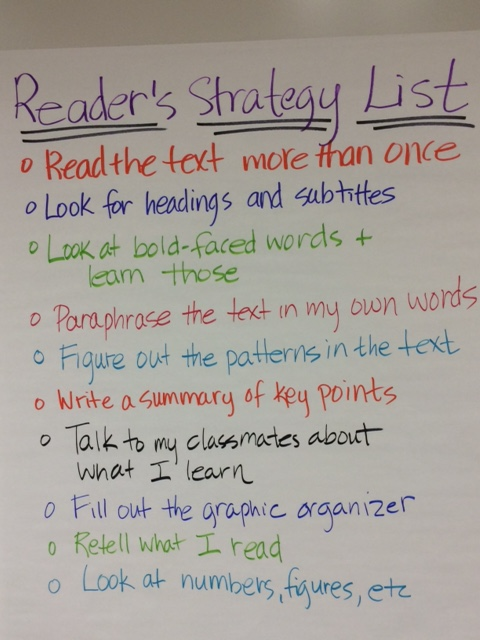 Reader's Strategy List
o Read the text more than once
o Look for headings and subtitles
o Look at bold-faced words +
learn those
o Paraphrase the text in my own words
o Figure out the patterns in the text
o Write a summary of key points
o Talk to my classmates about
what I learn
o Fill out the graphic organizer
o Retell what I read
o Look at numbers, figures, etc